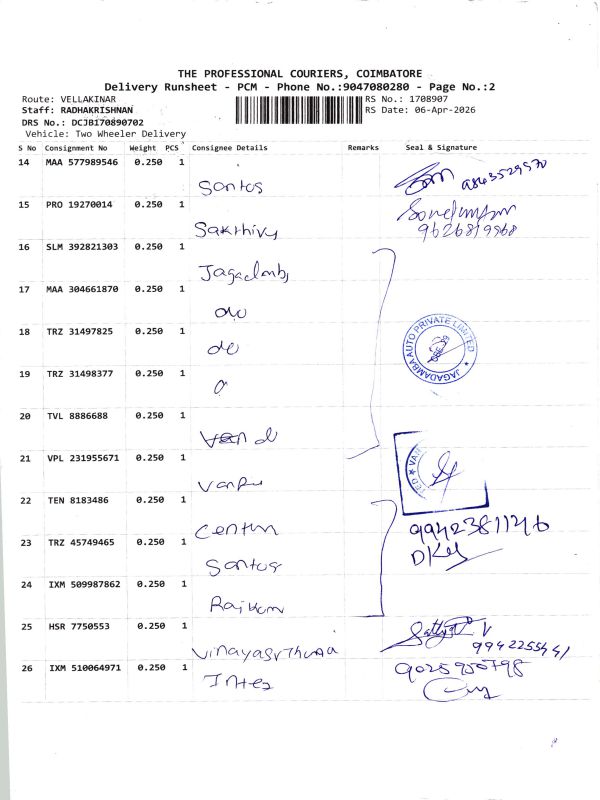 THE PROFESSIONAL COURIERS, COIMBATORE
Delivery Runsheet - PCM - Phone No.:9047080280 - Page No.:2
Route: VELLAKINAR
Staff: RADHAKRISHNAN
DRS No.: DCJB170890702
Vehicle: Two Wheeler Delivery
RS No.: 1708907
RS Date: 06-Apr-2026
S No Consignment No Weight PCS Consignee Details Remarks Seal & Signature
14 MAA 577989546 0.250 1
Santos
15 PRO 19270014 0.250 1
Sakthivy
9626819968
16 SLM 392821303 0.250 1
Jagadamb
17 MAA 304661870 0.250 1
do
18 TRZ 31497825 0.250 1
do
JAGADAMBA AUTO PRIVATE LIMITED
19 TRZ 31498377 0.250 1
20 TVL 8886688 0.250 1
21 VPL 231955671 0.250 1
22 TEN 8183486 0.250 1
9942381146
23 TRZ 45749465 0.250 1
Santos
24 IXM 509987862 0.250 1
Rajkum
25 HSR 7750553 0.250 1
9942255441
26 IXM 510064971 0.250 1
Intez
9025950798